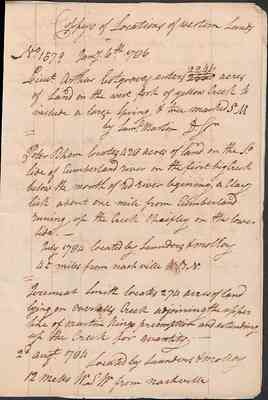 Coppys of Locations of western Lands
No 1579 Jany 6th 1786
Lieut Arthur Cotgraves enters 2246 acres
of Land on the west fork of yellow Creek to
include a large Spring & tree marked S M
by Saml Marton
Peter Isham locates 420 acres of land on the So
side of Cumberland river on the first big Creek
below the mouth of Red river begining a Clay
lick about one mile from Cumberland
runing up the Creek on the lower
side
July 1784 located by Saunders & molloy
42 miles from nashville N. W. N
Jeremiah Smith locates 274 acres of land
lying on overalls Creek adjoining the upper
line of martin Kings preemption and extending
up the Creek for quantity
2d augt 1784 Located by Saunders & molloy
12 miles W S W from nashville